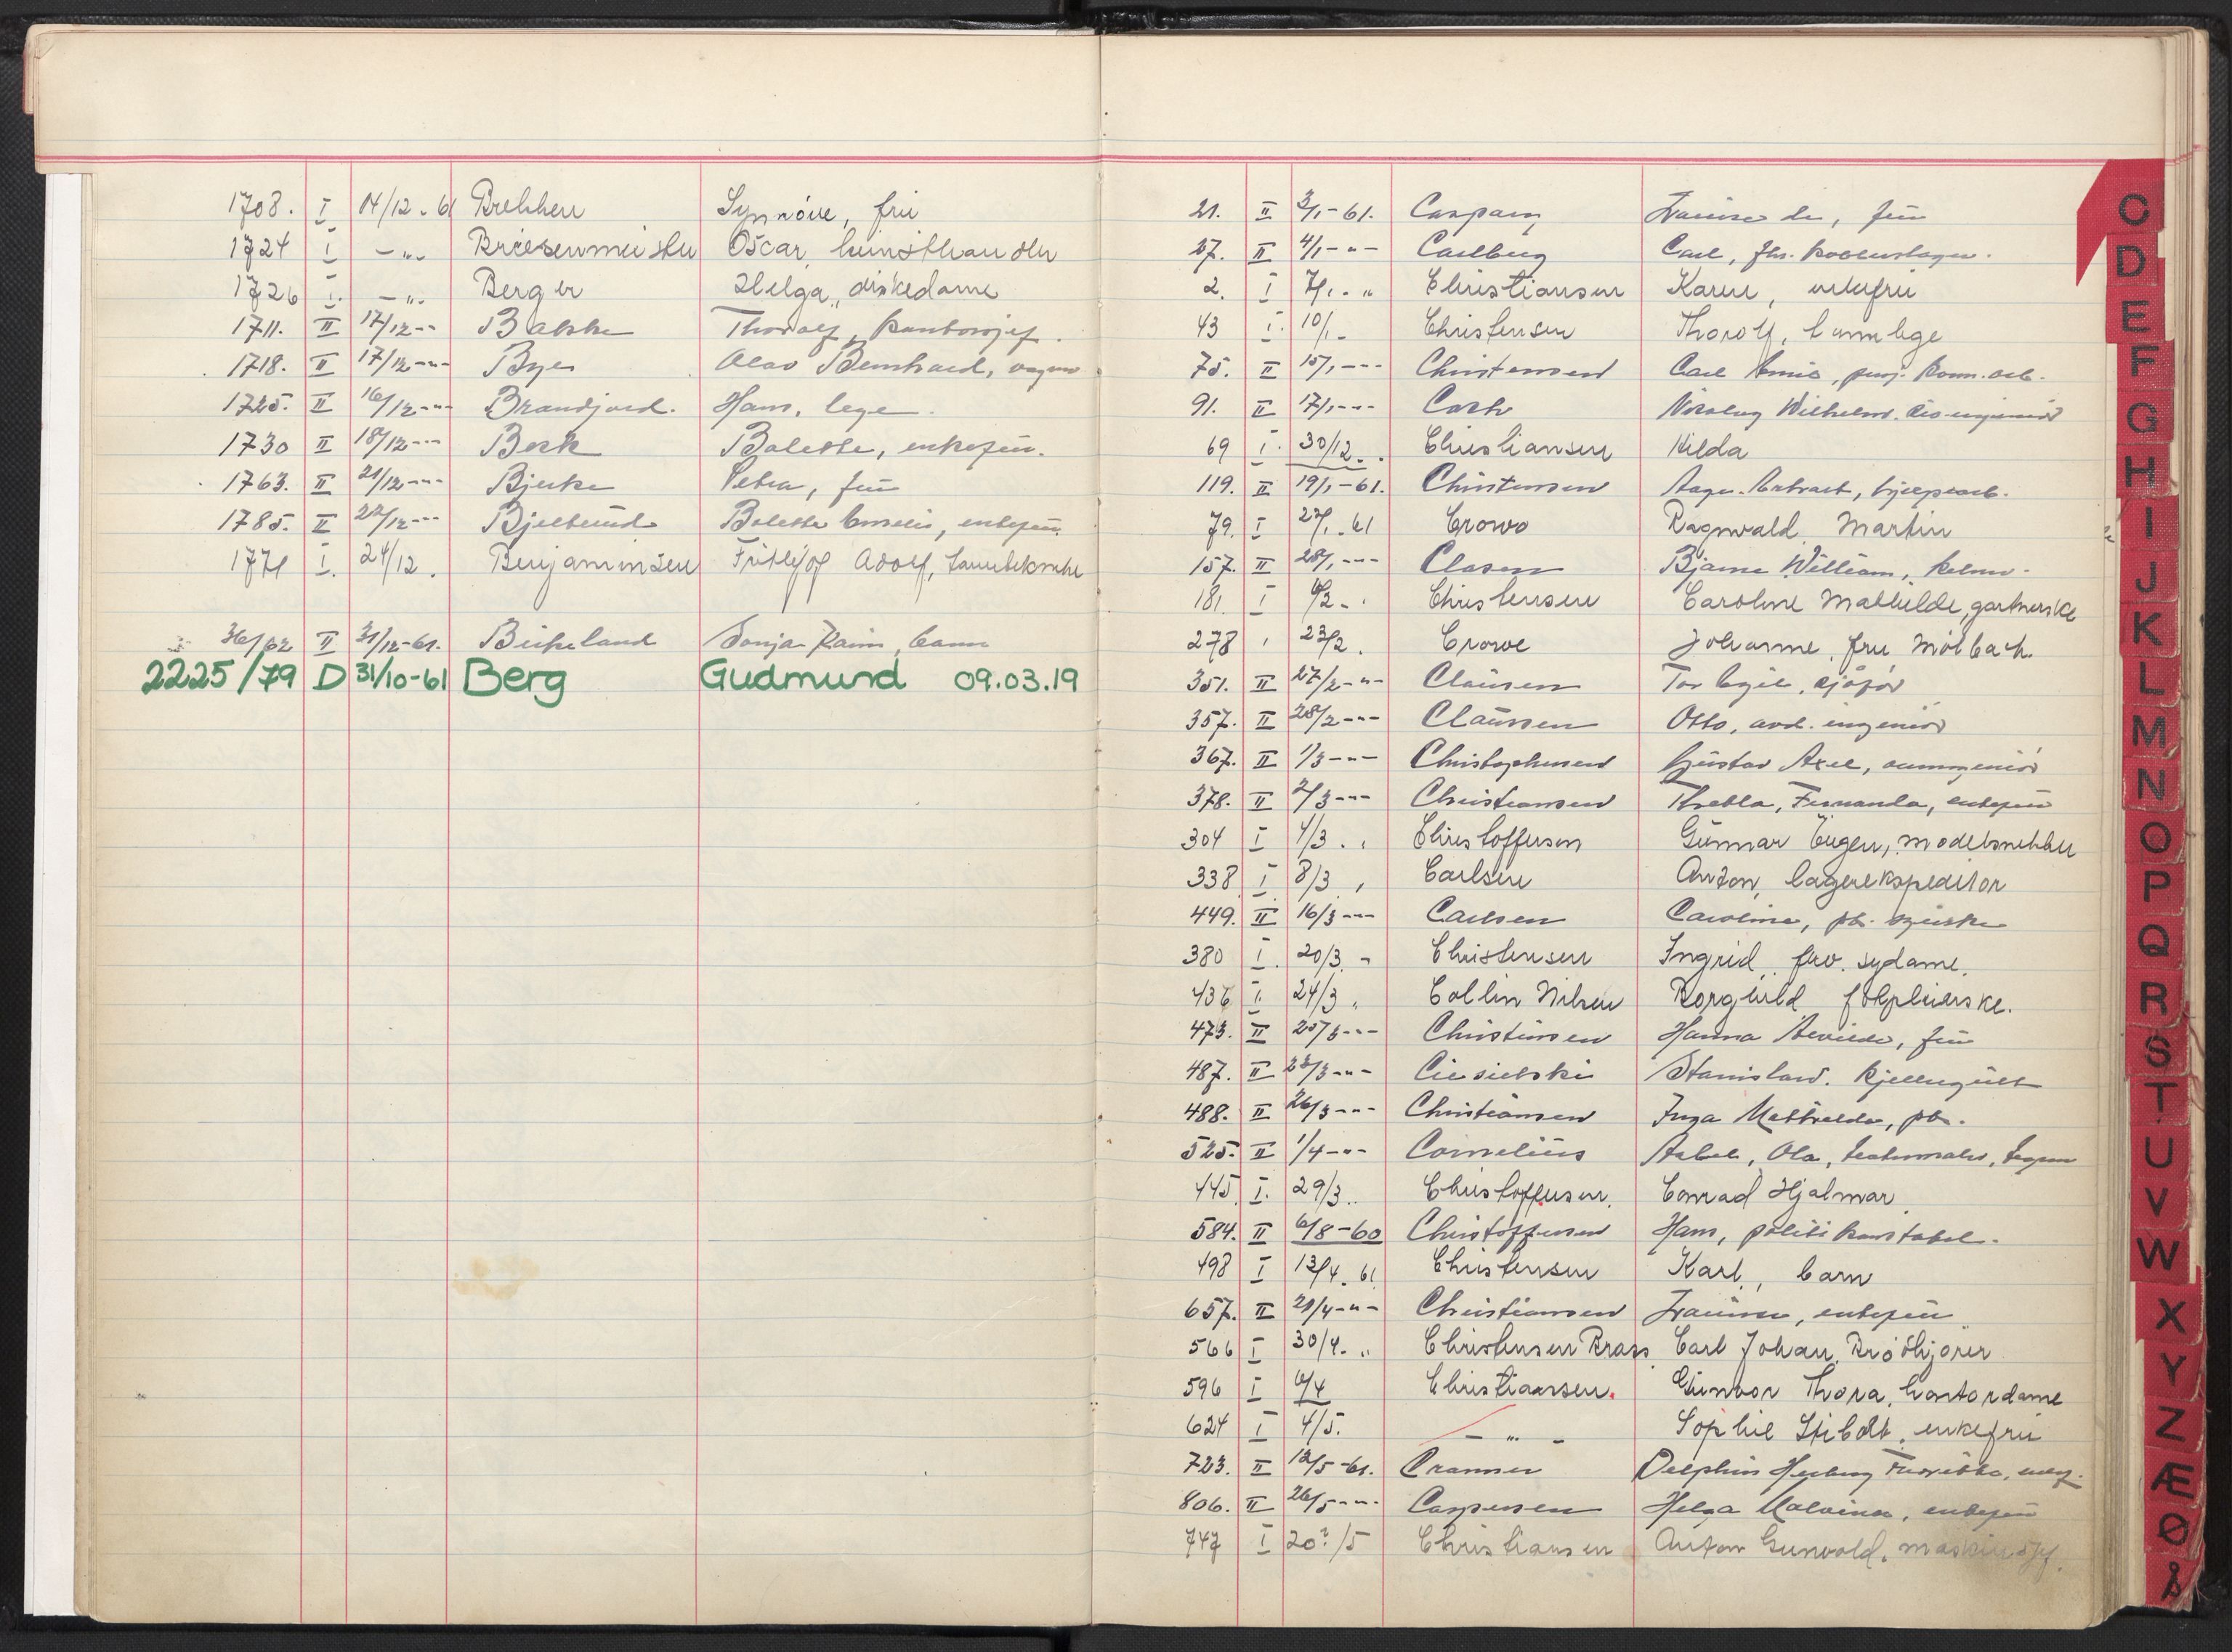 1708. I 14/12.61 Brekken Synnöve, frü
1724 I -"- Briesenmeister Oscar, kunsthandler
1726 I. -"- Berger Helga, diskedame
1711. II 17/12-- Bakke Thoralf, kontorsjef.
1718. II 17/12-"- Bye Olav Bernhard,
1725. II 16/12-"- Brandfjord. Hans, lege.
1730 II 18/12--- Berk Bolette, enkefrü.
1763. II 21/12-"- Bjerke Petra, frü
1785. II 22/12--- Bjelland Bolette Emelie, enkefrü.
1771 I. 24/12. Benjaminsen Frithjof Adolf, tanntekniker
36/62 II 31/12-61. Birkeland Sonja Karin, barn
2225/79 D 31/10-61 Berg Gudmund 09.03.19
21. II 3/1-61. Caspary frü
27. II 4/1-"- Carlberg Carl,
2. I 7/1.." Christiansen Karen, enkefrü
43 I. 10/1- Christensen Thorolf, tannlege
75. II 15/1--- Christensen Carl Emil,
91. II 17/1--- Wilhelm.
69 I. 30/12.. Christiansen Hilda
119. II 19/1-61. Christensen Aage.
79. I 27/1.61 Crowo Ragnvald Martin
157. II 28/1--- Clasen Bjarne William, kelner.
181. I 6/2-. Christensen Caroline Mathilde, gartnerske
278 23/2. Crowe Johanne, fru Molbach.
351. II 27/2-"- Claüsen Tor Egil, sjåför
357. II 28/2--- Claüssen Otto, avd. ingeniör
367. II 1/3-"- Christophersen Güstav Axel,
378. II 2/3--- Christiansen Thekla, Fernanda, enkefrü
304 I 4/3.. Christoffersen Günnar Eugen, modelsnekker
338 I 8/3, Carlsen Anton, lagerekspeditör
449. II 16/3--- Carlsen Caroline,
380 I. 20/3.- Christensen Ingrid, frk. sydame.
436 I. 24/3. Collin Nilsen Borghild
473. II 25/3--- Christensen Hanna Alvilde, frü
487. II 23/3-"- Ciesielski Stanislaw.
488. II 26/3--- Christiansen Inga Mathilde,
525. II 1/4-"- Cornelius Ola, teatermaler,
445. I. 29/3.. Christoffersen. Conrad Hjalmar.
584. II 6/8-60 Christoffersen Hans, politikonstabel.
498 I 13/4.61 Christensen Karl, barn
657. II 21/4-"- Christiansen enkefrü
566 I 30/4.." Christensen Brass Carl Johan, Brödkjörer
596 I 6/4 Christiansen. Günvor Thora, kontordame
624 I 4/5. -"- Sophie Stibolt, enkefrü
723. II 12/5-61. Cranner Delphin
806. II 26/5-"-. Caspersen Helga Malvine, enkefrü
747 I 20?/5 Christiansen Anton Gunvald, maskinsjef.
C
D
E
F
G
H
I
J
K
L
M
N
O
P
Q
R
S
T
U
V
W
X
Y
Z
Æ
Ø
Å